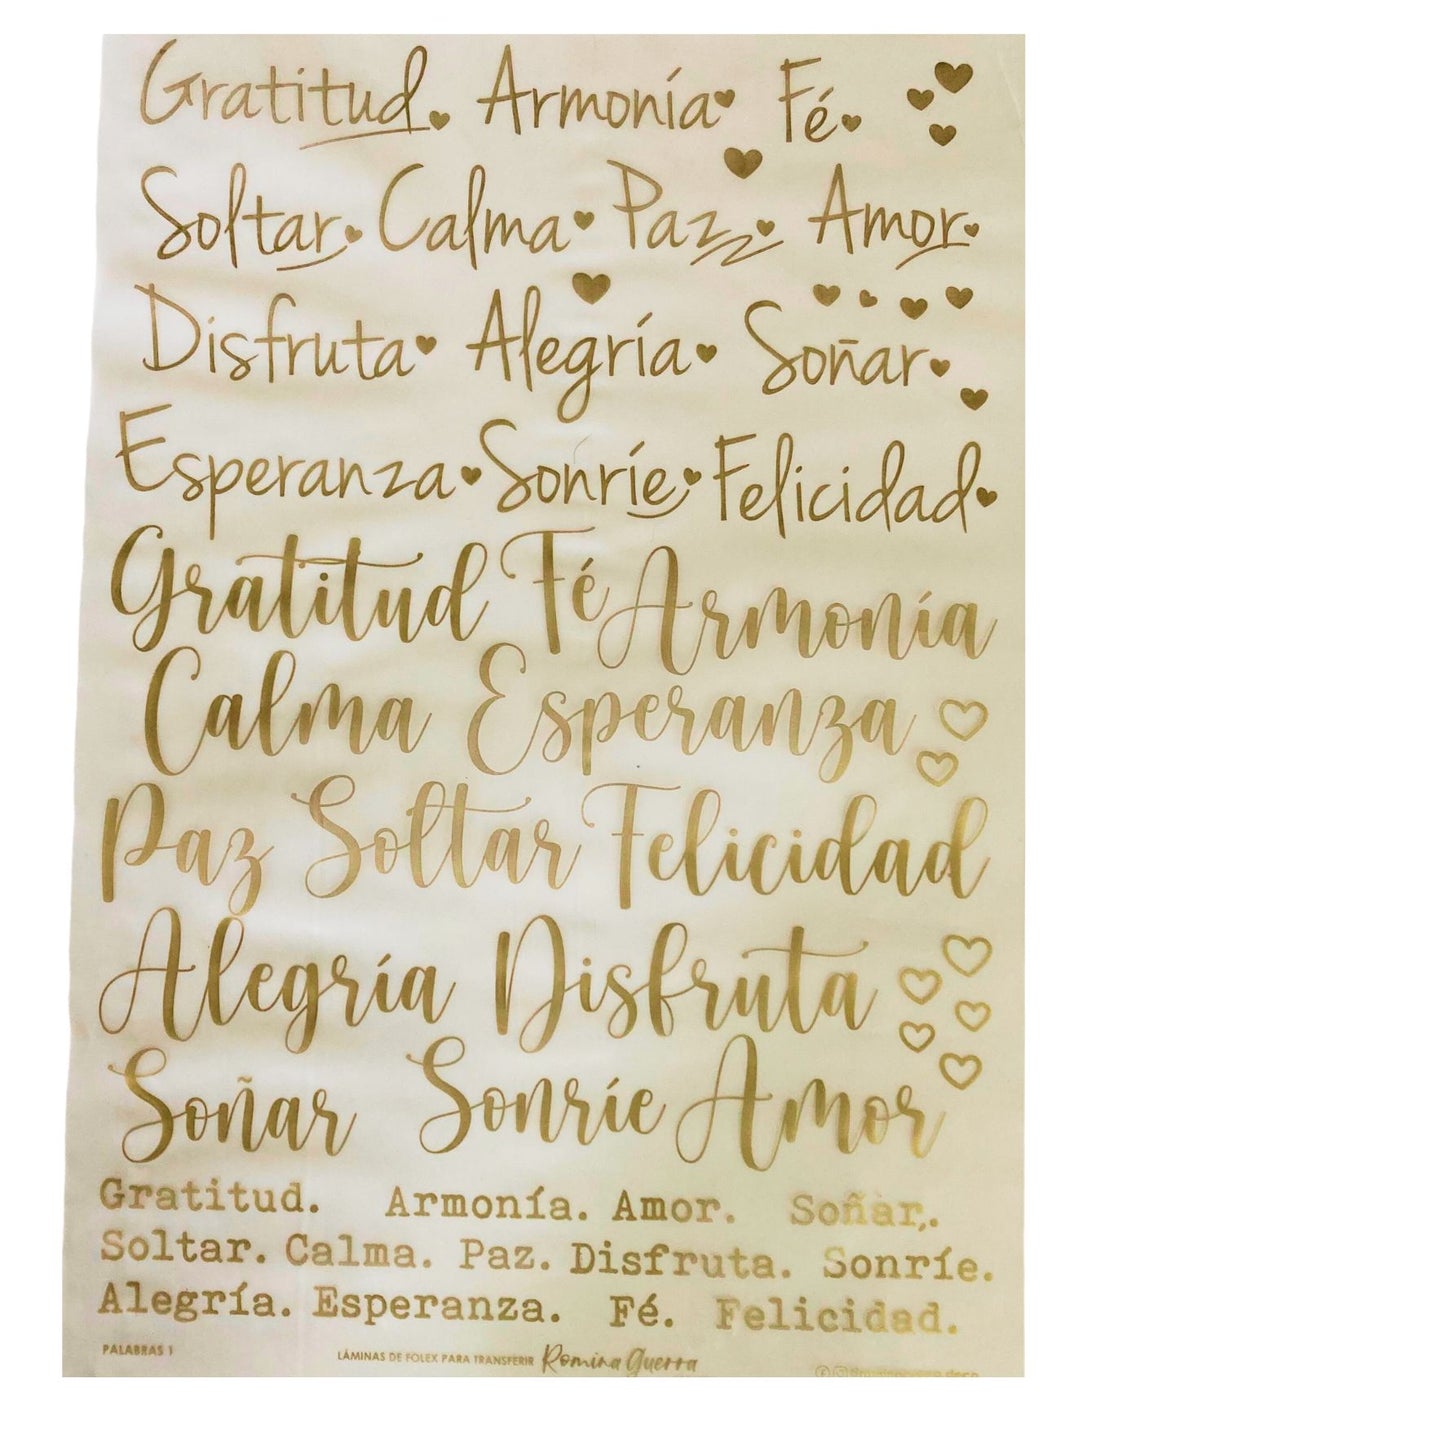 Gratitud. Armonía Fé.
Soltar. Calma Paz Amor.
Disfruta Alegría Soñar
Esperanza Sonríe Felicidad
Gratitud Fé Armonía
Calma Esperanza
Paz Soltar Felicidad
Alegría Disfruta
Soñar Sonríe Amor
Gratitud. Armonía. Amor. Soñar.
Soltar. Calma. Paz. Disfruta. Sonríe.
Alegría. Esperanza. Fé. Felicidad.
PALABRAS 1 LÁMINAS DE FOLEX PARA TRANSFERIR Romina Guerra